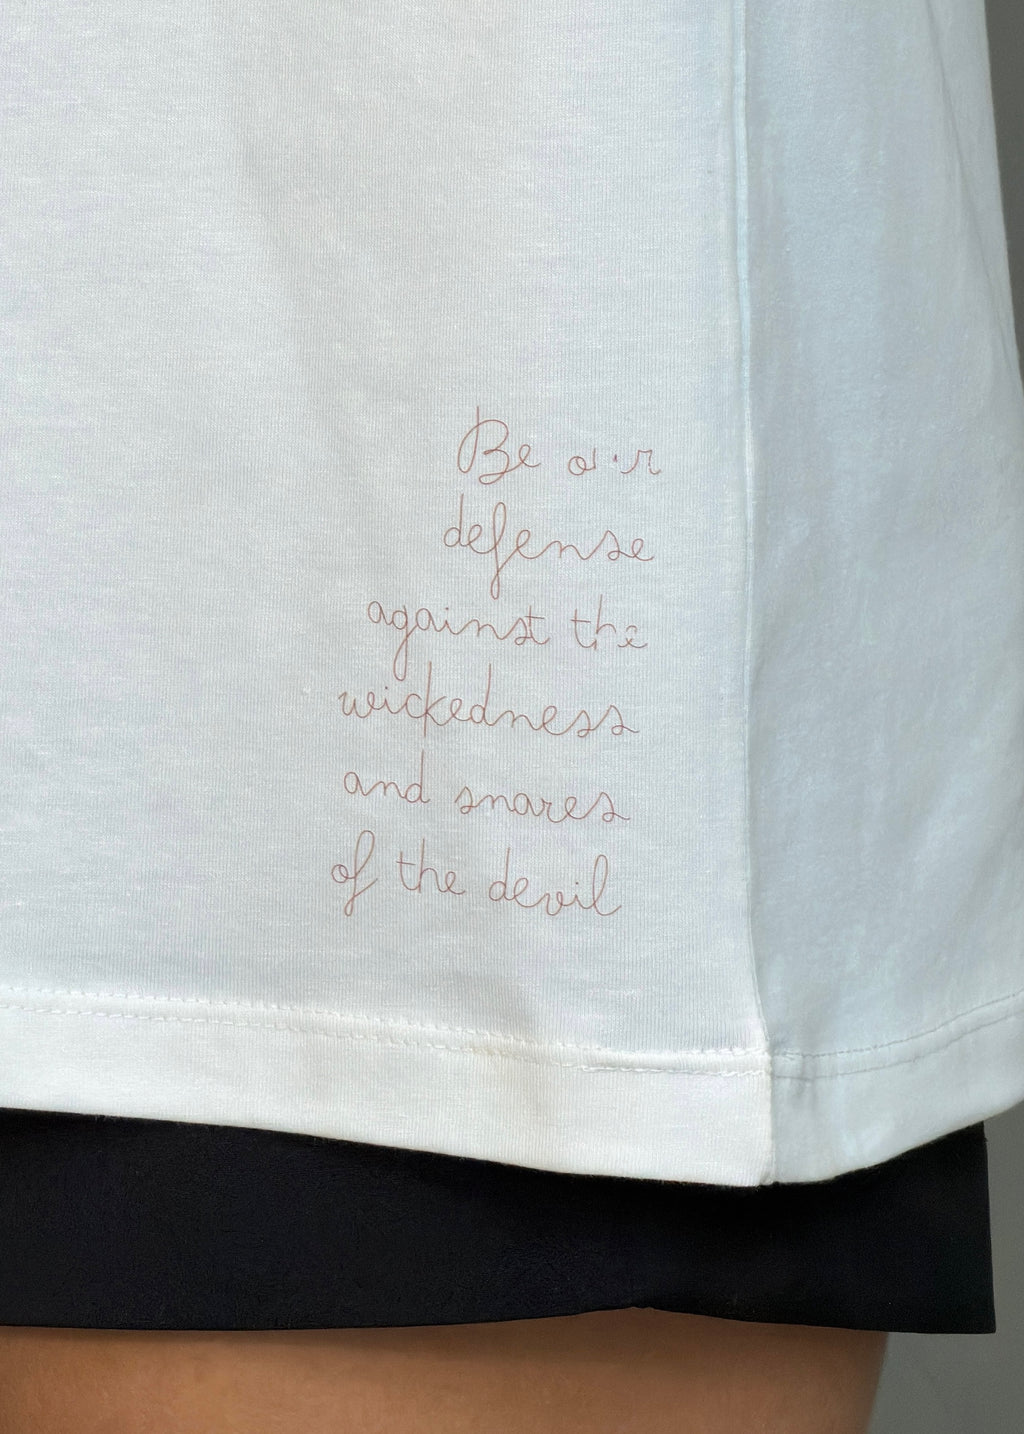 Be our
defense
against the
wickedness
and snares
of the devil